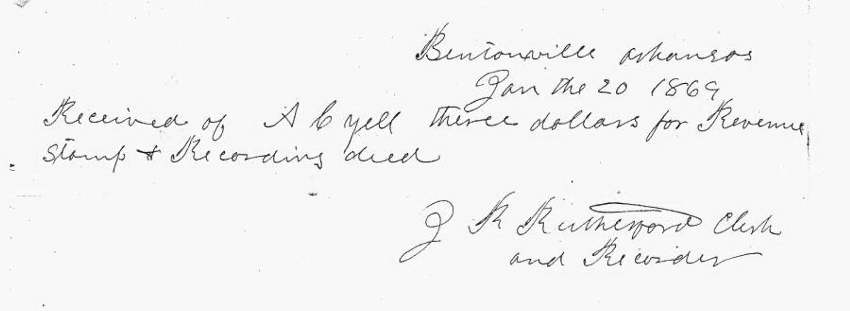 Bentonville arkansas
Jan the 20 1869
Received of A C yell theree dollars for Revenue
Stamp & Recording deed
J R Rutherford Clerk
and Recorder